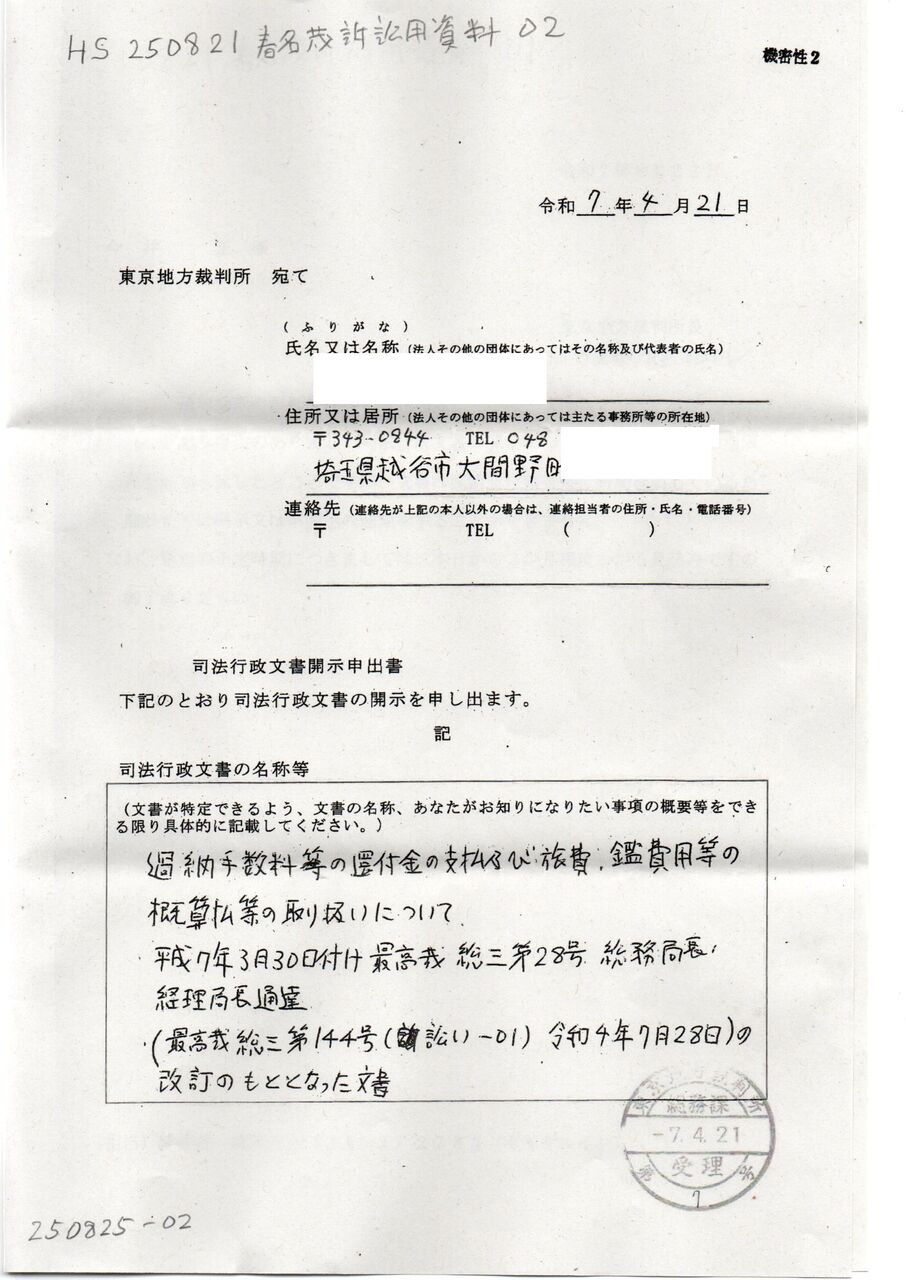 HS 250821 春名茂訴訟用資料 02
機密性2
令和 7 年 4 月 21 日
東京地方裁判所 宛て
(ふりがな)
氏名又は名称(法人その他の団体にあってはその名称及び代表者の氏名)
住所又は居所(法人その他の団体にあっては主たる事務所等の所在地)
〒343-0844 TEL 048
埼玉県越谷市大間野
連絡先(連絡先が上記の本人以外の場合は、連絡担当者の住所・氏名・電話番号)
〒 TEL ( )
司法行政文書開示申出書
下記のとおり司法行政文書の開示を申し出ます。
記
司法行政文書の名称等
(文書が特定できるよう、文書の名称、あなたがお知りになりたい事項の概要等をでき
る限り具体的に記載してください。)
過納手数料等の還付金の支払及び旅費、鑑費用等の
概算払等の取り扱いについて
平成7年3月30日付け最高裁総三第28号 総務局長・
経理局長通達
(最高裁総三第144号(訟い-01) 令和4年7月28日)の
改訂のもととなった文書
東京地方裁判所
総務課
-7.4.21
受理
第 号
1
250825-02